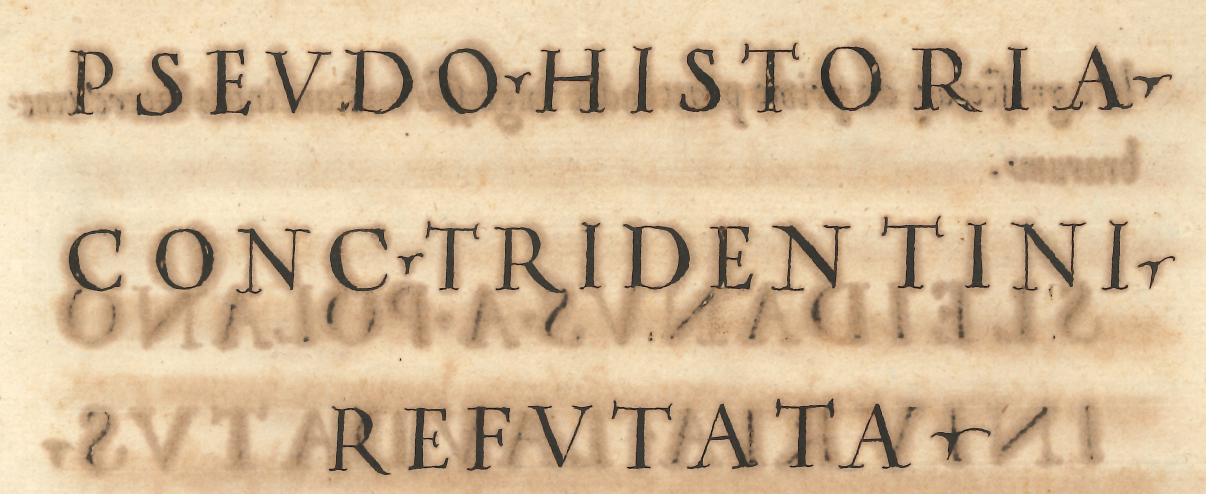 PSEVDO HISTORIA
CONC TRIDENTINI
REFVTATA